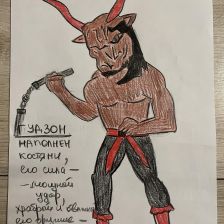 ГУДЗОН
НАПОЛНЕН
КОСТЯМИ,
его сила –
– мощный
удар,
храбрый и
его оружие –